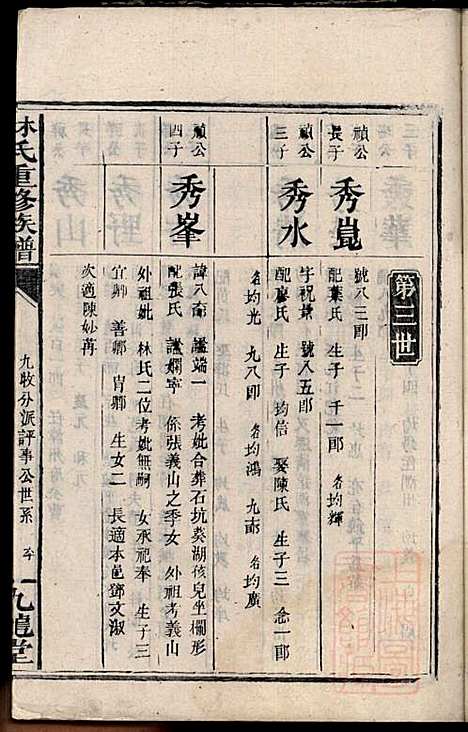 第三世
禎公
長子
秀崑
號八三郎
配葉氏 生子 千一郎 名均輝
禎公
三子
秀水
字祝景 號八五郎
配廖氏 生子 均信 娶陳氏 生子三 念一郎
名均光 九八郎 名均鴻 九郎 名均廣
禎公
四子
秀峯
諱八 謚端一 考妣合葬石坑葵湖孩兒坐欄形
配張氏 謚嫻寧 係張義山之季女 外祖考義山
外祖妣林氏二位考妣無嗣 女承祀奉 生子三
宜卿 善卿 胄卿 生女二 長適本邑鄧文淑
次適陳妙苒
林氏重修族譜
九牧分派評事公世系
九龍堂